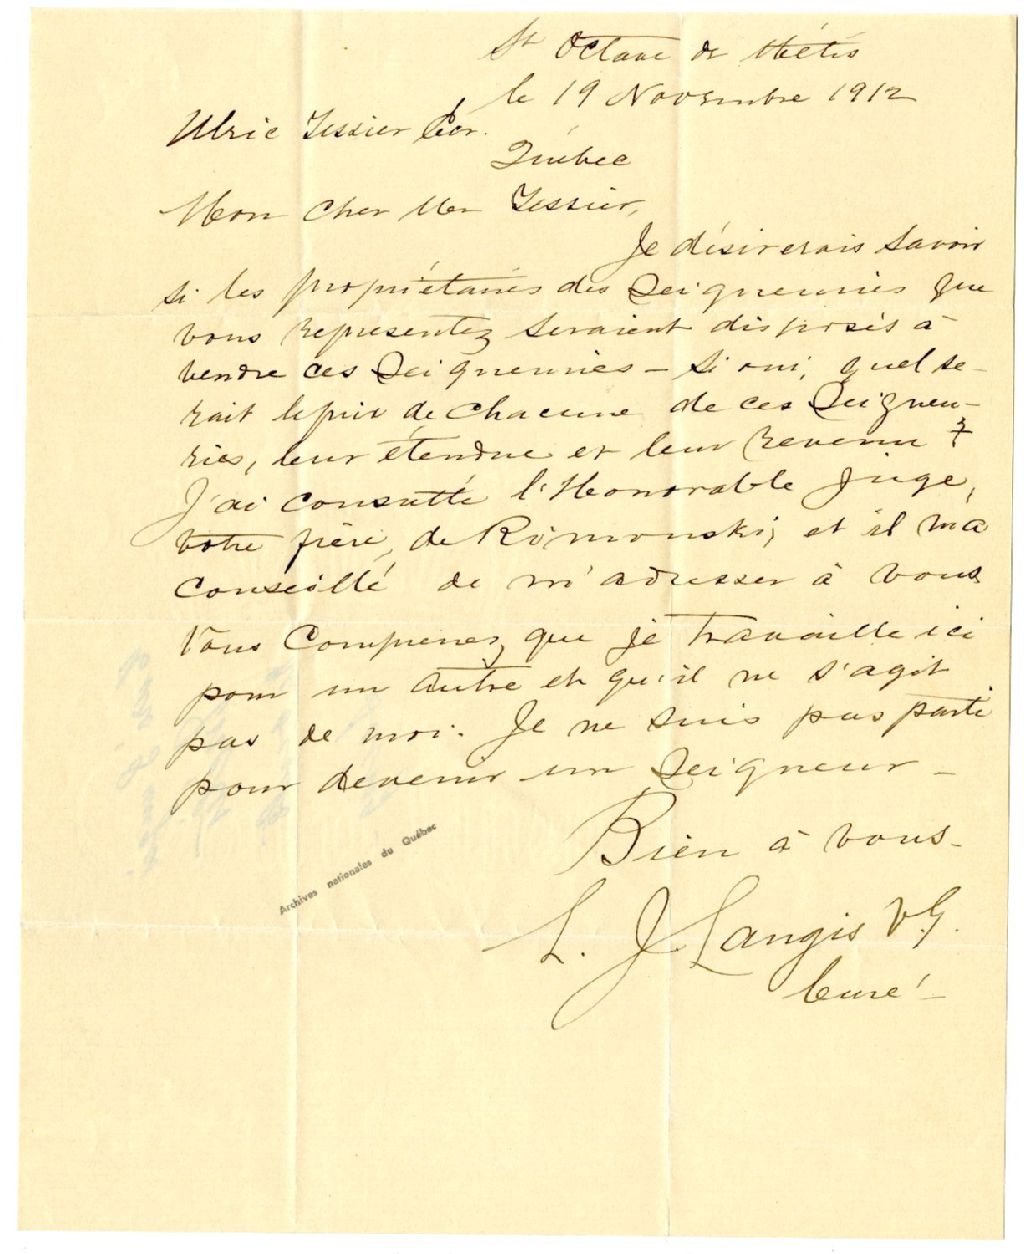 St Octave de Métis
le 19 Novembre 1912
Ulric Tessier Ecr.
Québec
Mon cher Mr Tessier,
Je désirerais savoir
si les propriétaires des Seigneuries que
vous representez seraient disposés à
vendre ces Seigneuries – si oui, quel se-
rait le prix de chacune de ces Seigneu-
ries, leur étendue et leur revenu ?
J'ai consulté l'Honorable Juge,
votre frère, de Rimouski, et il m'a
conseillé de m'adresser à vous
Vous comprenez que je travaille ici
pour un autre et qu'il ne s'agit
pas de moi. Je ne suis pas parti
pour devenir un Seigneur –
Bien à vous –
L. J Langis V.G.
Curé –
Archives nationales du Québec